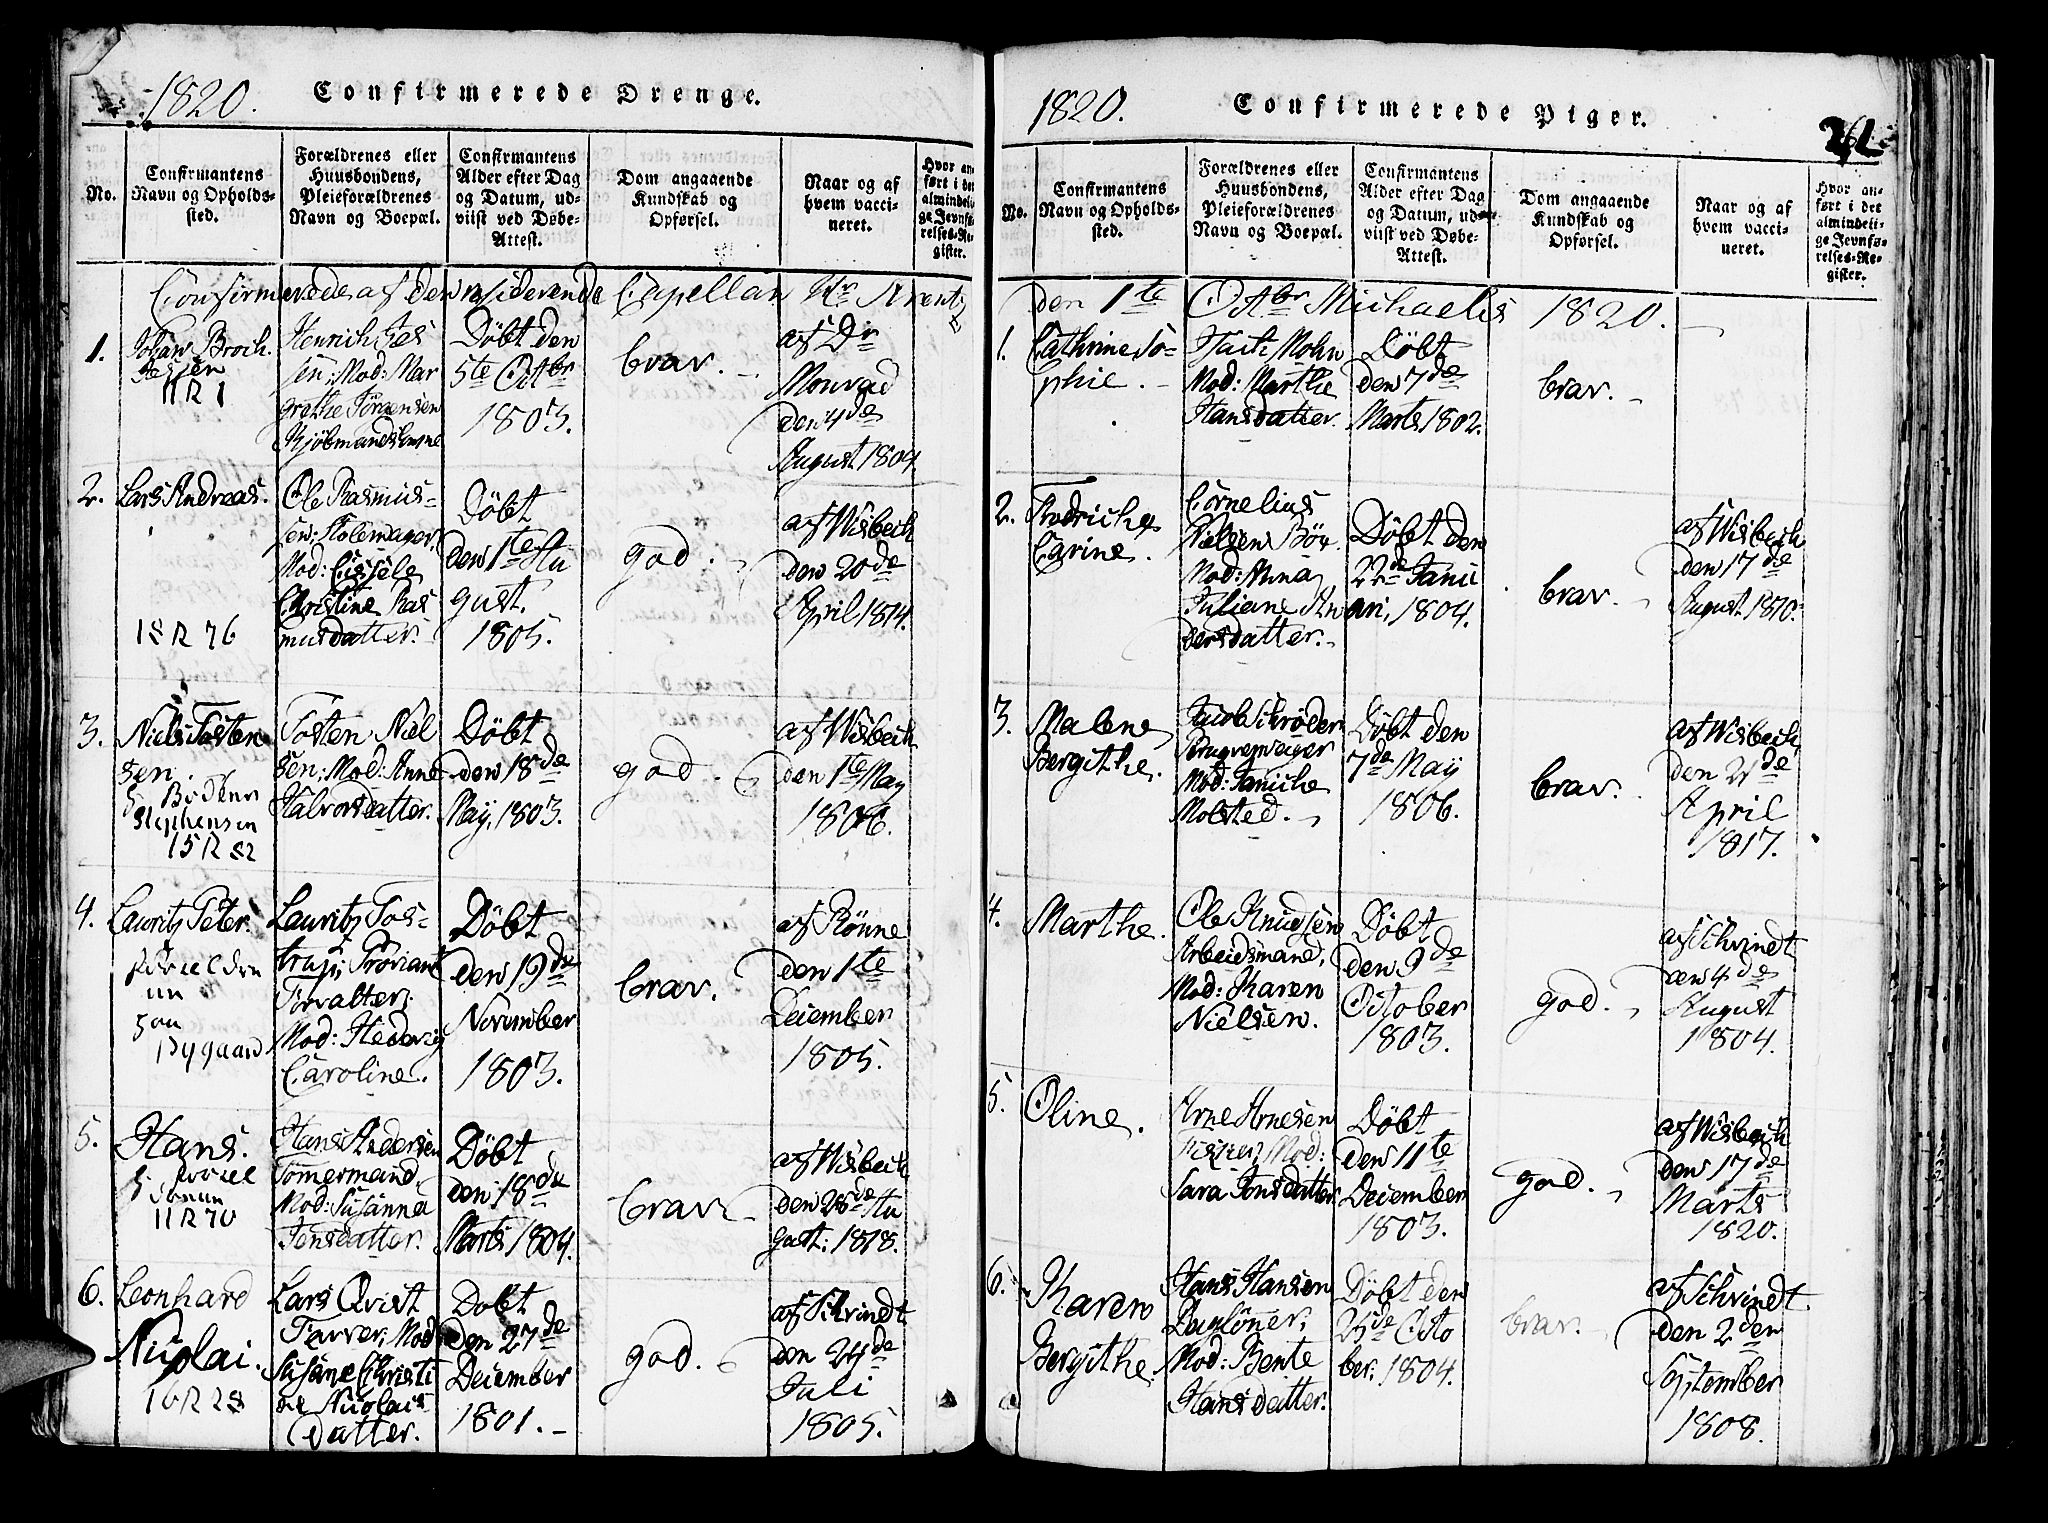 1820.
Confirmerede Drenge.
No.
Confirmantens
Navn og Opholds-
sted.
Forældrenes eller
Huusbondens,
Pleieforældrenes
Navn og Boepæl.
Confirmantens
Alder efter Dag
og Datum, ud-
viist ved Døbe-
Attest.
Dom angaaende
Kundskab og
Opførsel.
Naar og af
hvem vacci-
neret.
Hvor an-
ført i det
almindeli-
ge Jevnfø-
relses-Re-
gister.
Confirmerede af den residerende Capellan Hr Arentz
1.
Johan Broch.
Jessen
11 R 1
Henrich Jes
sen; Mod: Mar
grethe Jörgensen
Kjöbmandskone
Döbt den
5te Octbr
1803.
brav.
af Dr
Monrad
den 4de
August 1804
2.
Lars Andreas.
18 R 76
Ole Rasmus-
sen; Stolemager.
Mod: Cissele
Christine Ras
musdatter.
Döbt
den 1te Au
gust.
1805.
god.
af Wisbech
den 20de
April 1814.
3.
Niels Tosten
sen.
Stephensen
15 R 82
Tosten Niel
sen; Mod: Anne
Halvorsdatter.
Döbt
den 18de
May, 1803.
god.
af Wisbech
den 1te May
1806.
4.
Lauritz Peter.
Lauritz Tos-
trup; Proviant
Forvalter.
Mod: Hedevig
Caroline.
Döbt
den 19de
November
1803.
brav.
af Rönne
den 1te
December
1805.
5.
Hans.
11 R 70
Hans Andersen
Tömmermand,
Mod: Susanna
Jensdatter.
Döbt
den 18de
Marts 1804.
brav
af Wisbech
den 28de Au
gust: 1818.
6.
Leonhard
Nicolai.
16 R 28
Lars Qvist
Farver; Mod
Susane Christi
ne Nicolais
datter.
Döbt
den 27de
December
1801.
god.
af Schvindt
den 24de
Juli
1805.
1820.
Confirmerede Piger.
No.
Confirmantens
Navn og Opholds-
sted.
Forældrenes eller
Huusbondens,
Pleieforældrenes
Navn og Boepæl.
Confirmantens
Alder efter Dag
og Datum, ud-
viist ved Døbe-
Attest.
Dom angaaende
Kundskab og
Opførsel.
Naar og af
hvem vacci-
neret.
Hvor an-
ført i det
almindeli-
ge Jevnfø-
relses-Re-
gister.
den 1te Octbr Michaelis 1820.
1.
Cathrine So-
phie.
Mohn
Mod: Marthe
Hansdatter.
Döbt
den 7de
Marts 1802.
brav.
2.
Fredricha
Carine.
Cornelius
Nielsen Böe.
Mod: Anna
Juliane An
dersdatter.
Döbt den
22de Janu
ari, 1804.
brav.
af Wisbech
den 17de
August 1810.
3.
Malene
Bergithe.
Jacob Schröder
Mod: Janiche
Molsted.
Döbt den
7de May
1806.
brav.
af Wisbech
den 21de
April
1817.
4.
Marthe.
Ole Knudsen
Arbeidsmand,
Mod: Karen
Nielsen.
Döbt
den 9de
October
1803.
god.
af Schvindt
den 4de
August
1804.
5.
Oline.
Arne Arnesen
Mod:
Sara Jonsdatter.
Döbt
den 11te
December
1803.
god.
af Wisbech
den 17de
Marts
1820.
6.
Karen
Bergithe.
Hans Hansen
Daglönner;
Mod: Bente
Hansdatter.
Döbt den
25de Octo
ber; 1804.
brav.
af Schvindt
den 2den
September
1808.